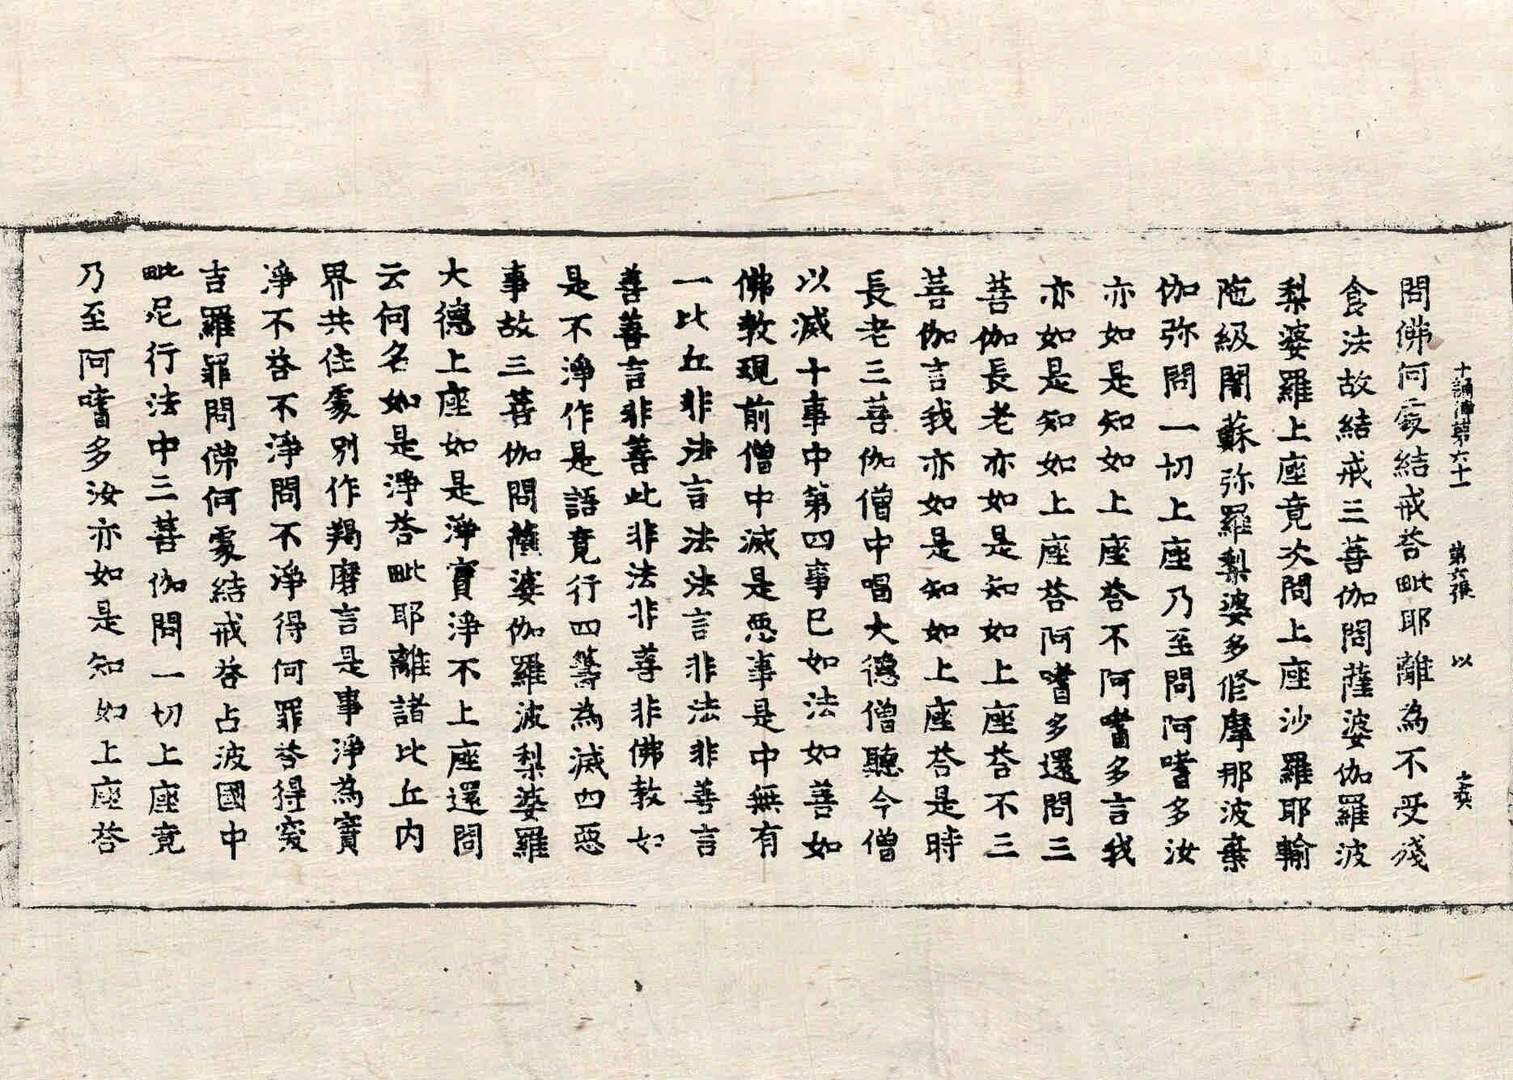 十誦律第六十一　第六張　以
問佛何處結戒荅毗耶離為不受殘
食法故結戒三菩伽問薩婆伽羅波
梨婆羅上座竟次問上座沙羅耶輸
陁級闍蘇弥羅梨婆多修摩那波棄
伽弥問一切上座乃至問阿嗜多汝
亦如是知如上座荅不阿嗜多言我
亦如是知如上座荅阿嗜多還問三
菩伽長老亦如是知如上座荅不三
菩伽言我亦如是知如上座荅是時
長老三菩伽僧中唱大德僧聽今僧
以滅十事中第四事已如法如善如
佛教現前僧中滅是惡事是中無有
一比丘非法言法法言非法非善言
善善言非善此非法非善非佛教如
是不淨作是語竟行四籌為滅四惡
事故三菩伽問薩婆伽羅波梨婆羅
大德上座如是淨實淨不上座還問
云何名如是淨荅毗耶離諸比丘內
界共住處別作羯磨言是事淨為實
淨不荅不淨問不淨得何罪荅得突
吉羅罪問佛何處結戒荅占波國中
毗尼行法中三菩伽問一切上座竟
乃至阿嗜多汝亦如是知如上座荅